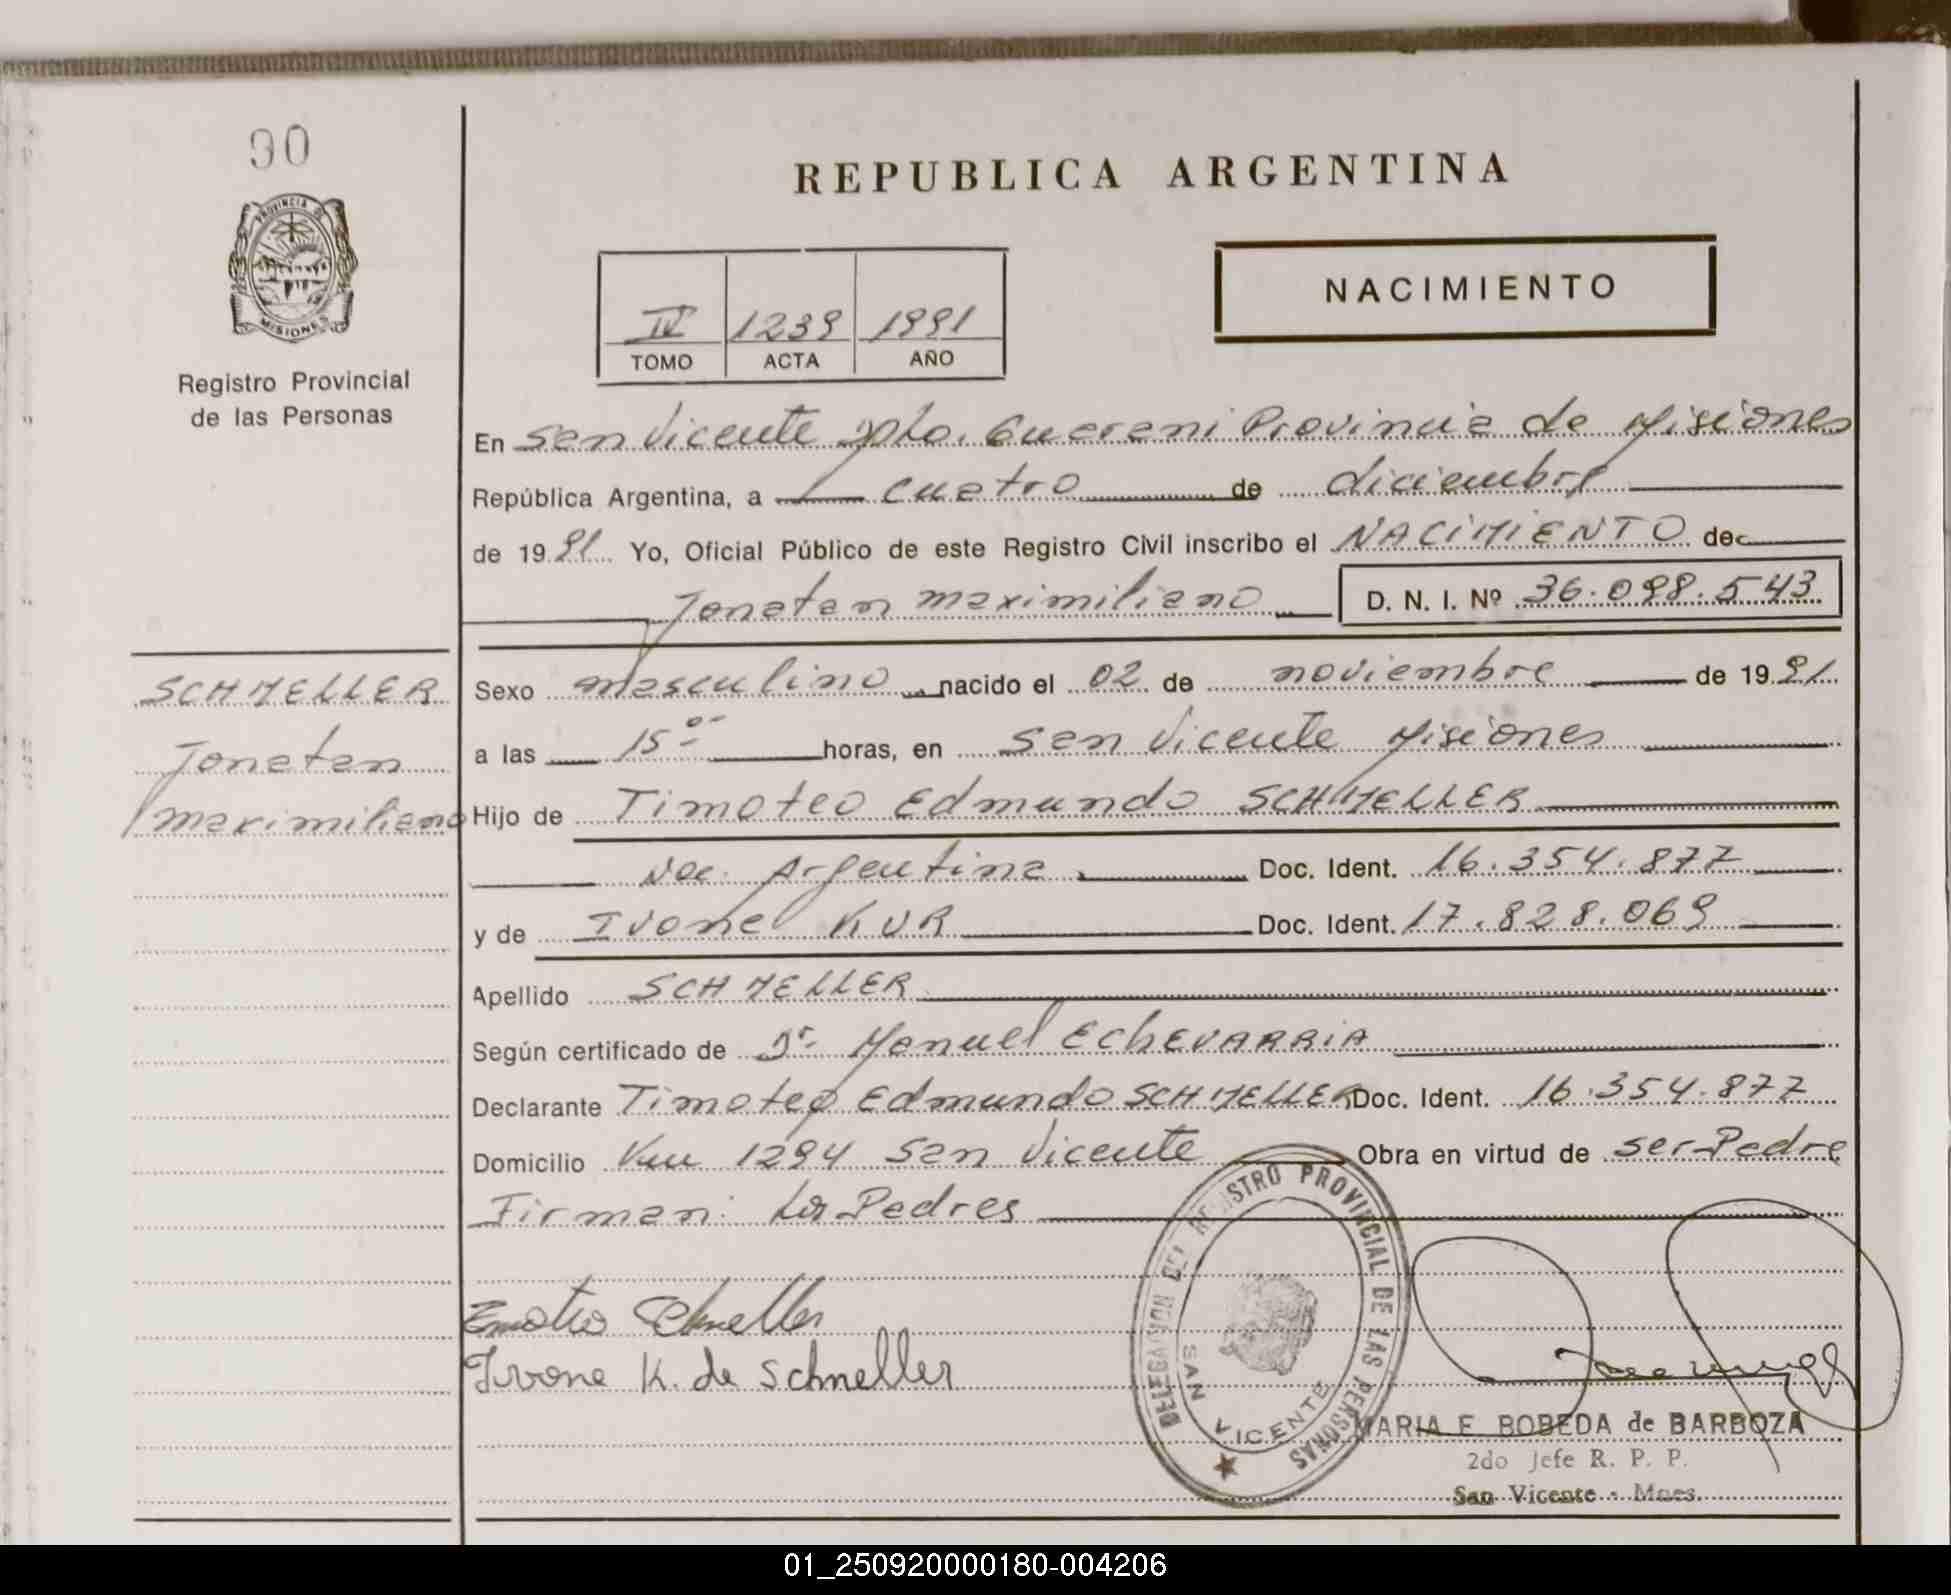 90
PROVINCIA DE
MISIONES
Registro Provincial
de las Personas
REPUBLICA ARGENTINA
NACIMIENTO
IV 1239 1991
TOMO ACTA AÑO
En San Vicente Dpto. Guarani Provincia de Misiones
República Argentina, a cuatro de diciembre
de 1991 Yo, Oficial Público de este Registro Civil inscribo el NACIMIENTO de
Jonatan maximiliano D. N. I. Nº 36.098.543
SCHMELLER
Jonatan
maximiliano
Sexo masculino nacido el 02 de noviembre de 1991
a las 15 horas, en San Vicente Misiones
Hijo de Timoteo Edmundo SCHMELLER
Nac. Argentina Doc. Ident. 16.354.877
y de Ivone KUR Doc. Ident. 17.828.069
Apellido SCHMELLER
Según certificado de Dr. Manuel EchEVARRiA
Declarante Timoteo Edmundo SCHMELLER Doc. Ident. 16.354.877
Domicilio Km 1294 San Vicente Obra en virtud de ser Padre
Firman: Los Padres
Schneller
Ivone K. de Schneller
DELEGACION DEL REGISTRO PROVINCIAL DE LAS PERSONAS
SAN VICENTE
MARIA E. BOBEDA de BARBOZA
2do Jefe R. P. P.
San Vicente - Mnes.
01_250920000180-004206